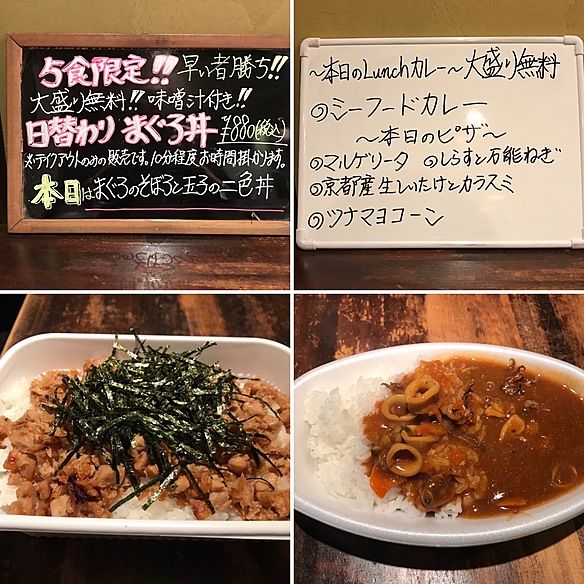 5食限定!! 早い者勝ち!!
大盛り無料!! 味噌汁付き!!
日替わり まぐろ丼 ¥880(税込)
※テイクアウトのみの販売です。10分程度お時間掛かります。
本日はまぐろのそぼろと玉子の二色丼
～本日のLunchカレー～大盛り無料
◎シーフードカレー
～本日のピザ～
◎マルゲリータ ◎しらすと石能ねぎ
◎京都産生しいたけとカラスミ
◎ツナマヨコーン